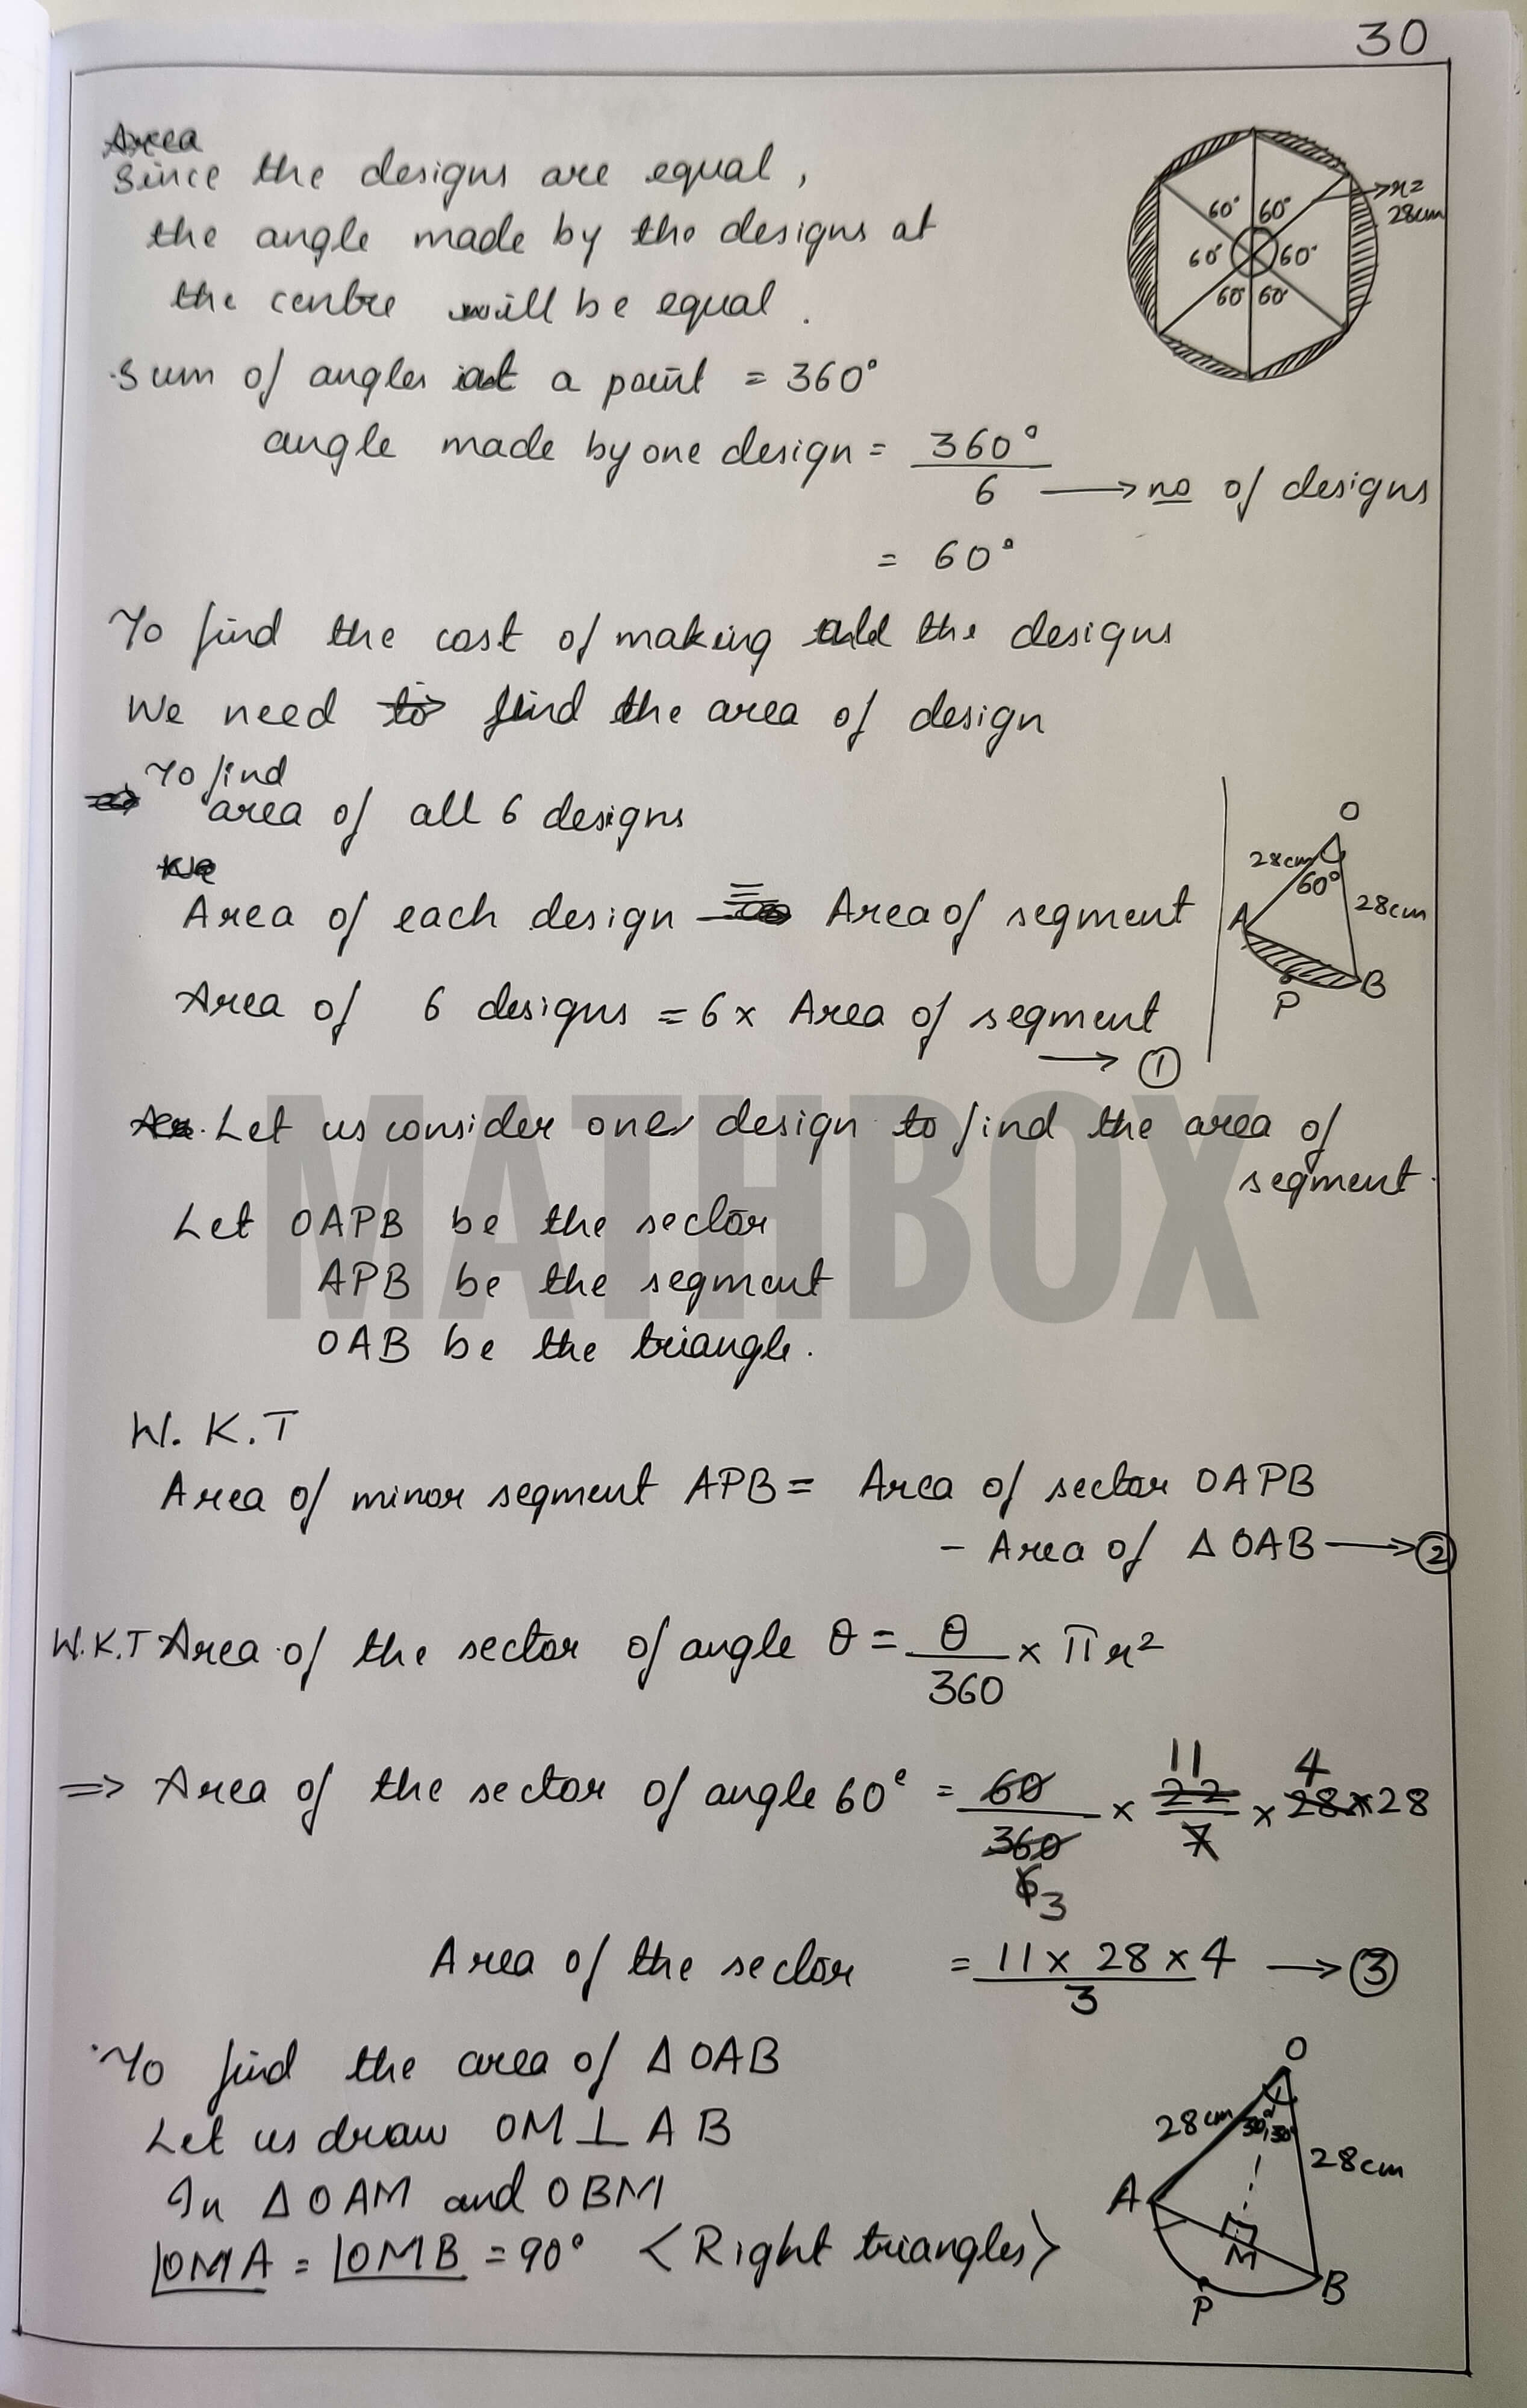 30
Since the designs are equal,
the angle made by the designs at
the centre will be equal.
r=
28cm
60° 60°
60° 60°
60° 60°
Sum of angles at a point = 360°
angle made by one design = 360°
6 → no of designs
= 60°
To find the cost of making all the designs
We need to find the area of design
To find
area of all 6 designs
Area of each design = Area of segment
Area of 6 designs = 6 x Area of segment
→ ①
O
28cm
60°
28cm
A
B
P
Let us consider one design to find the area of
segment.
MATHBOX
Let OAPB be the sector
APB be the segment
OAB be the triangle.
W.K.T
Area of minor segment APB = Area of sector OAPB
- Area of Δ OAB → ②
W.K.T Area of the sector of angle θ = θ/360 x πr²
11 4
⇒ Area of the sector of angle 60° = 60/360 x 22/7 x 28x28
6 3
Area of the sector = 11 x 28 x 4 / 3 → ③
To find the area of Δ OAB
Let us draw OM ⊥ AB
In Δ OAM and OBM
∠OMA = ∠OMB = 90° <Right triangles>
O
28cm
30° 30°
28cm
A
M
B
P